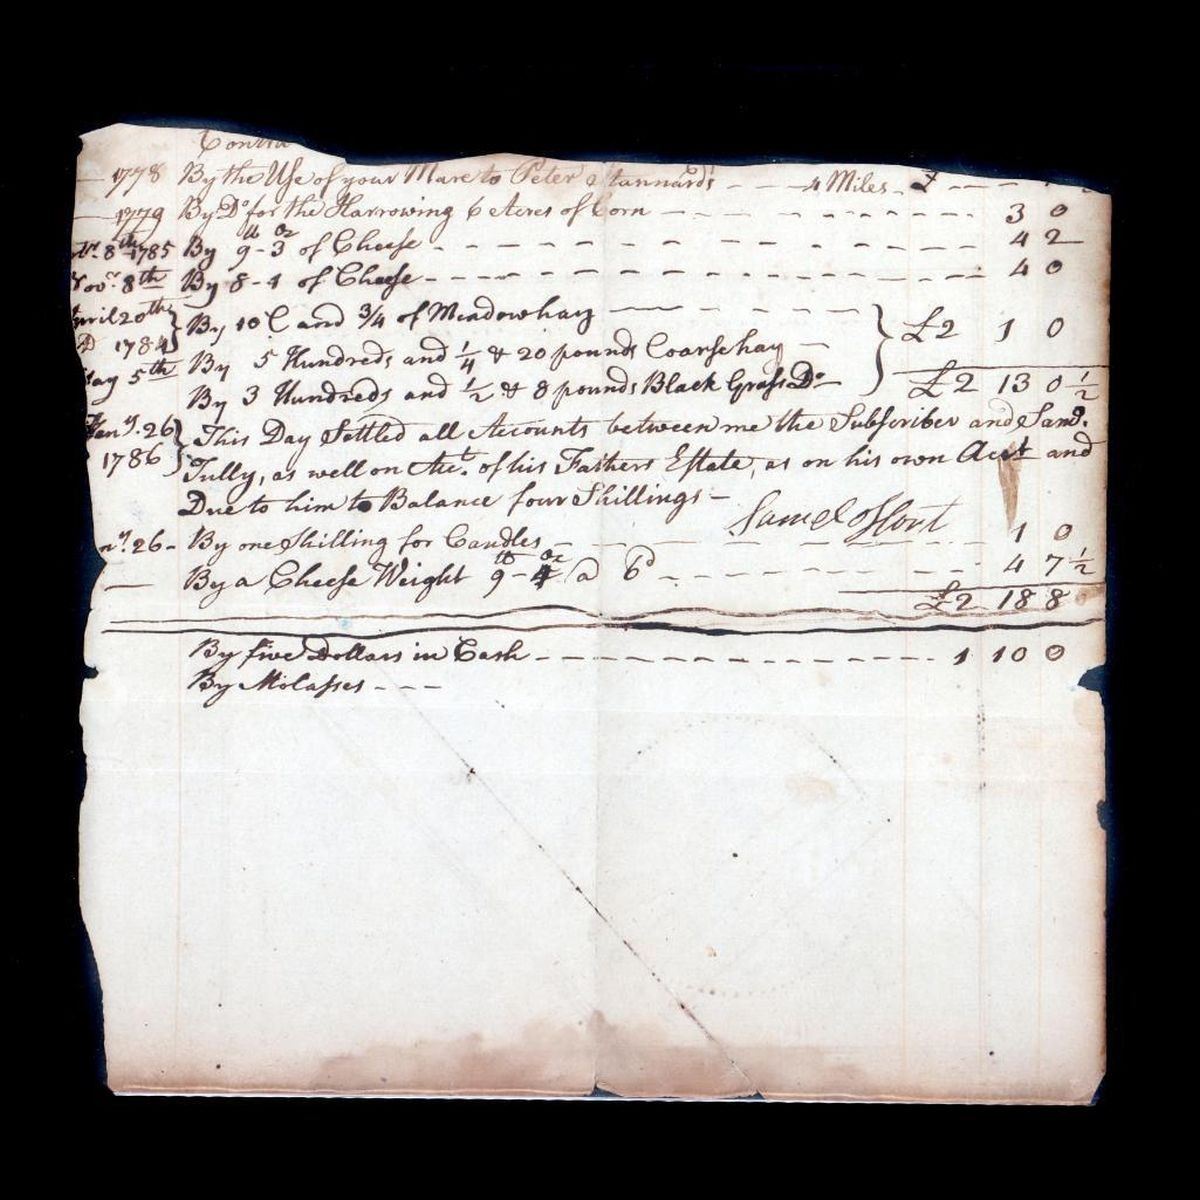 Contra
1778 By the Use of your Mare to Peter Stannards - - - 4 Miles - £ - - -
1779 By Do for the Harrowing 6 Acres of Corn - - - 3 0
8th 1785 By 9 lb - 3 oz of Cheese - - - 4 2
Novr. 8th By 8 - 1 of Cheese - - - 4 0
April 20th By 10 C and 3/4 of Meadow hay - - -
1784 By 5 Hundreds and 1/4 & 20 pounds Coarse hay - } £2 1 0
May 5th By 3 Hundreds and 1/2 & 8 pounds Black Grass Do - £2 13 0 1/2
Jany. 26 This Day Settled all Accounts between me the Subscriber and Saml.
1786 Tully, as well on Act. of his Fathers Estate, as on his own Act and
Due to him to Balance four Shillings -
Samel
ny. 26 - By one Shilling for Candles - - - 1 0
By a Cheese Weight 9 lb - 4 oz @ 6d - - - 4 7 1/2
£2 18 8
By five Dollars in Cash - - - 1 10 0
By Molasses - - -